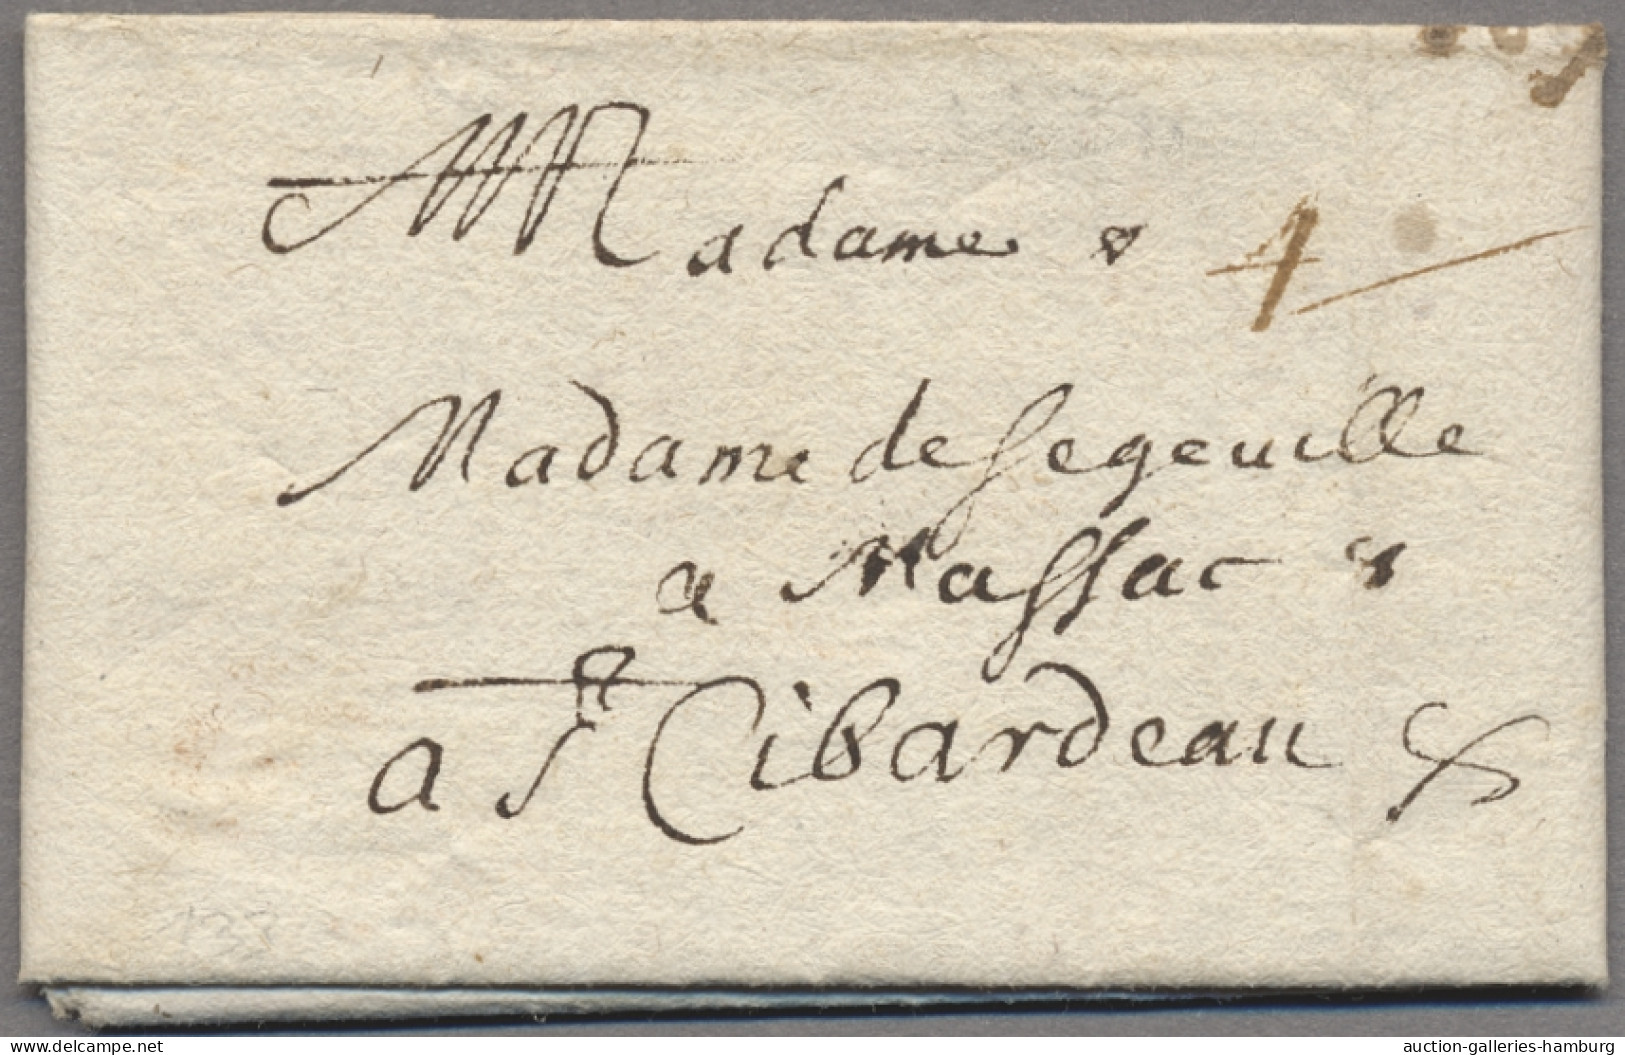 Madame
Madame de Segeuille
a Massac
a St Cibardeau
133
www.delcampe.net
auction-galleries-hamburg